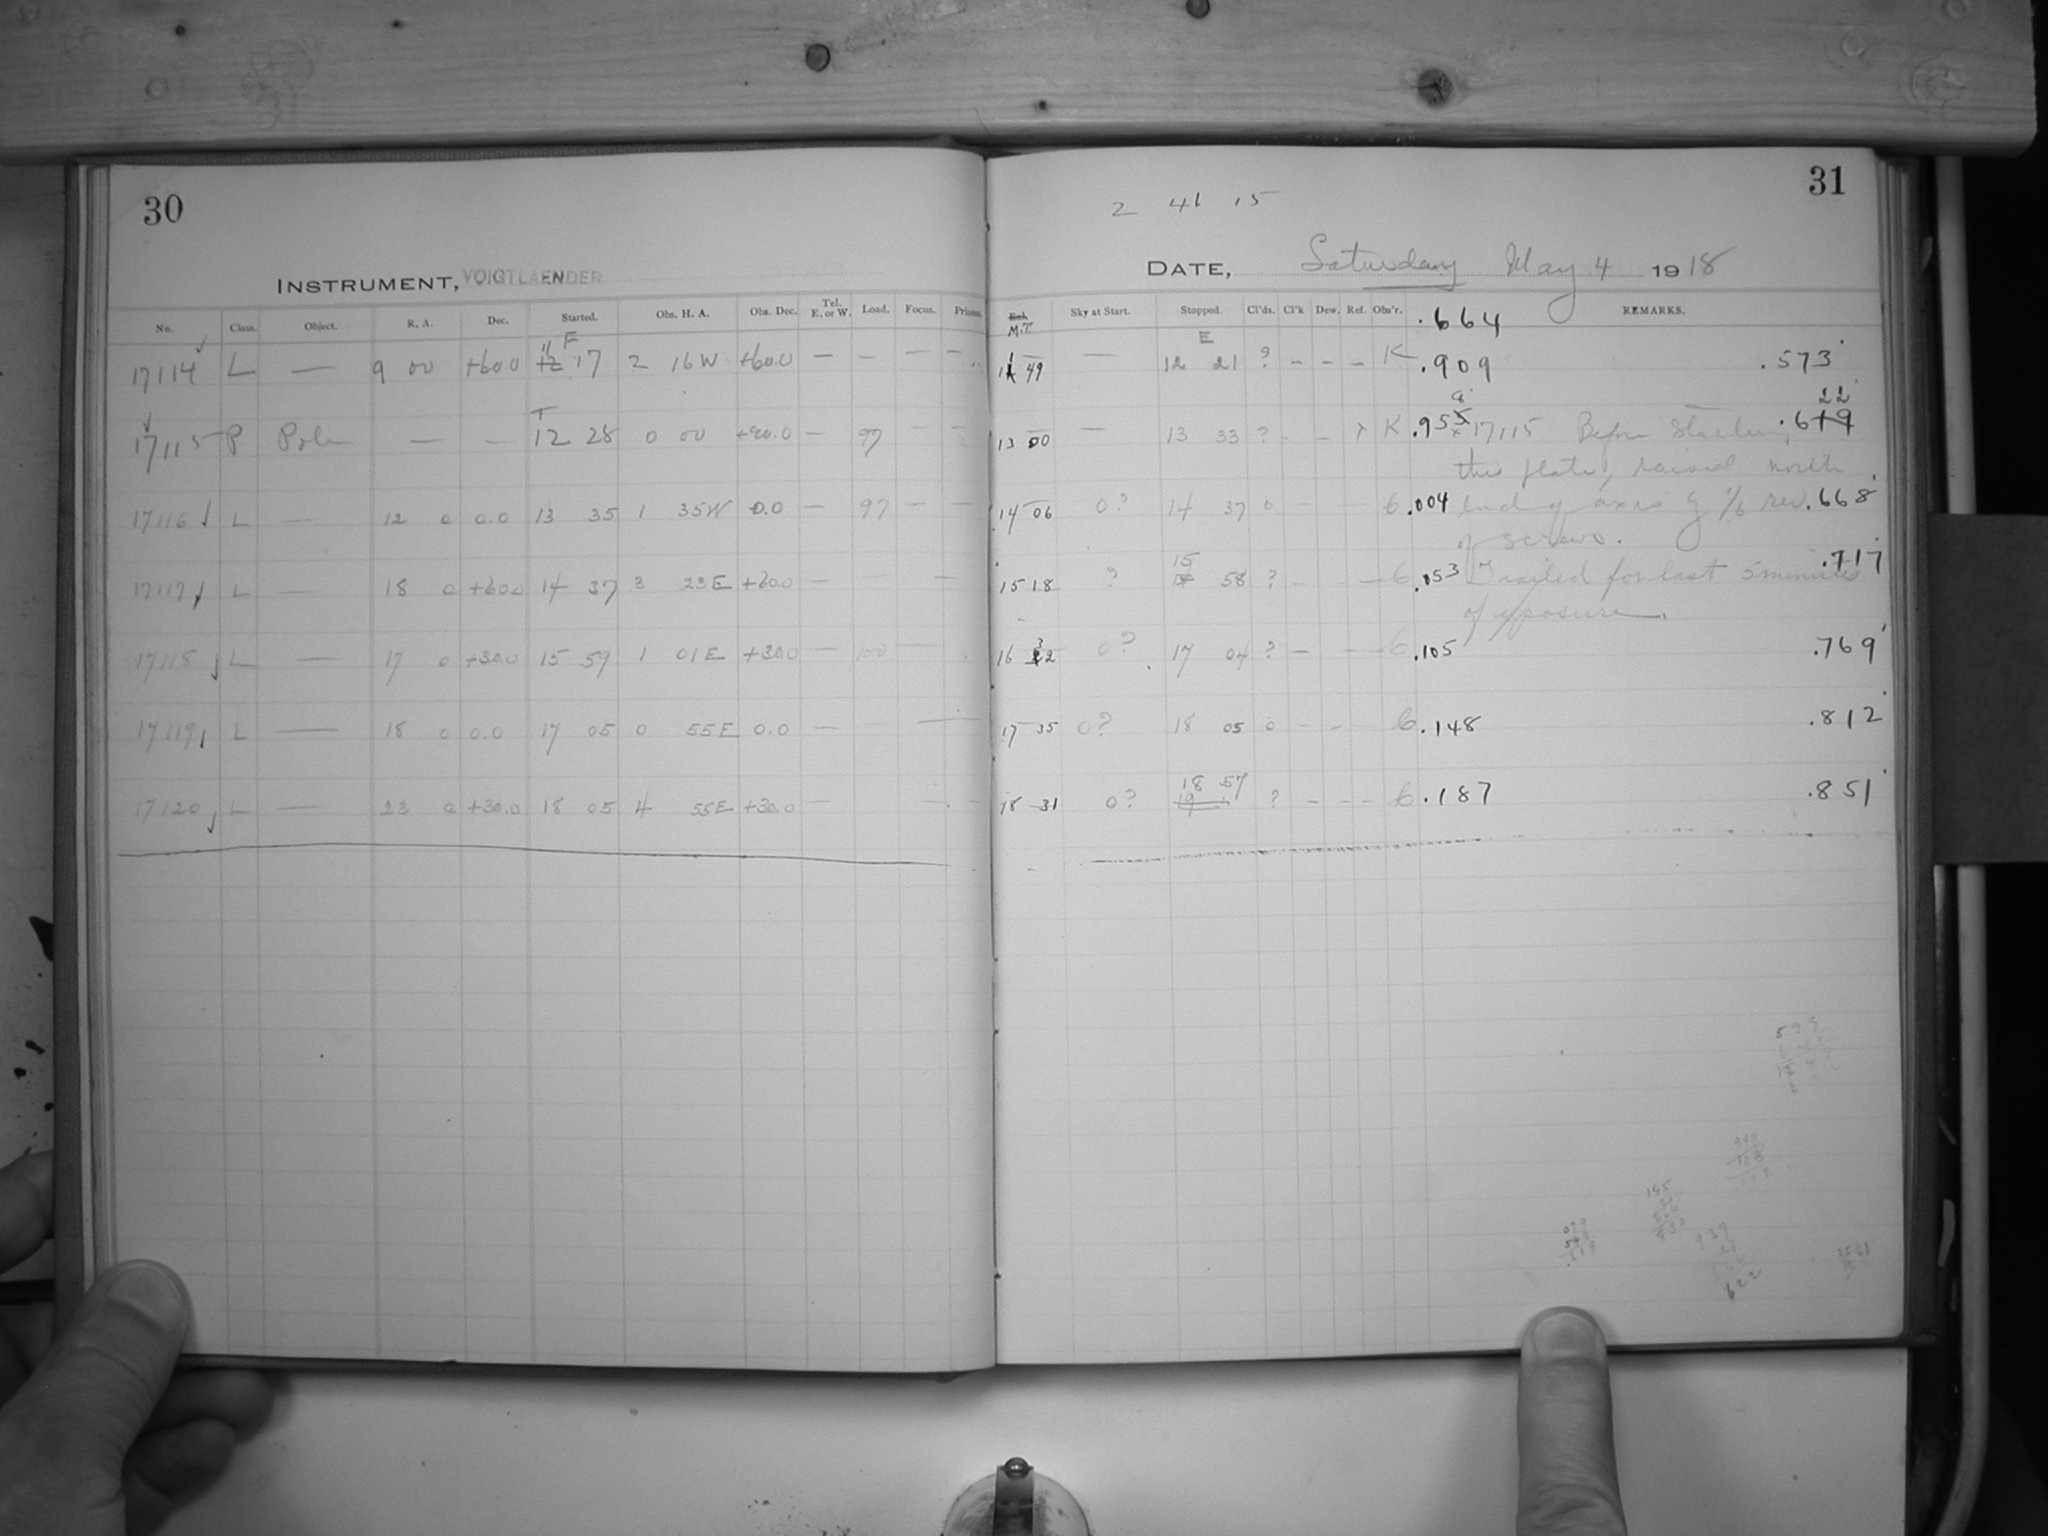 30
INSTRUMENT, VOIGTLAENDER
No. Class. Object. R. A. Dec. Started. Obs. H. A. Obs. Dec. Tel. E. or W. Load. Focus. Prisms.
17114 L — 9 00 +60.0 11 17 2 16W +60.0 — — — —
17115 P Pole — — 12 28 0 00 +90.0 — 97 — —
17116 L — 12 0 0.0 13 35 1 35W 0.0 — 97 — —
17117 L — 18 0 +60.0 14 37 3 23E +60.0 —
17118 L — 17 0 +30.0 15 59 1 01E +30.0 — 100 —
17119 L — 18 0 0.0 17 05 0 55E 0.0 —
17120 L — 23 0 +30.0 18 05 4 55E +30.0 —
31
2 46 15
DATE, Saturday May 4 1918
M.T. Sky at Start. Stopped. Cl'ds. Cl'k Dew. Ref. Obs'r. REMARKS.
.664
11 49 — 12 21 ? — — — K .909 .573
13 00 — 13 33 ? - - K 17115 Before starting .622
this plate, raised north
14 06 0? 14 37 0 .004 end of axis by 1/6 rev. .668
of screws.
15 18 ? 15 58 ? .053 Trailed for last 5 minutes .717
of exposure.
16 32 0? 17 04 ? — .105 .769
17 35 0? 18 05 0 .148 .812
18 31 0? 18 57 ? — .187 .851
622